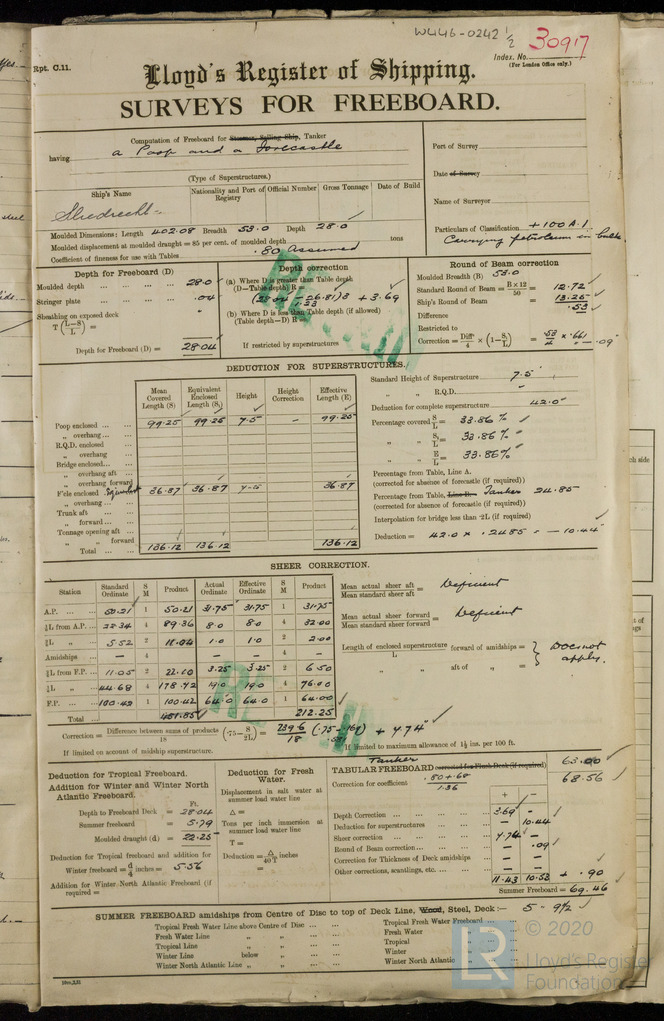 W446-0242 1/2
30917
Rpt. C.11.
Index. No.
(For London Office only.)
Lloyd's Register of Shipping.
SURVEYS FOR FREEBOARD.
Computation of Freeboard for Steamer, Sailing Ship, Tanker
having a Poop and a Forecastle
(Type of Superstructures.)
Port of Survey
Date of Survey
Name of Surveyor
Particulars of Classification +100 A.1.
Carrying petroleum in bulk.
Ship's Name
Nationality and Port of Registry
Official Number
Gross Tonnage
Date of Build
Sliedrecht
Moulded Dimensions: Length 402.08 Breadth 53.0 Depth 28.0
Moulded displacement at moulded draught = 85 per cent. of moulded depth tons
Coefficient of fineness for use with Tables .80 Assumed
Depth for Freeboard (D)
Moulded depth 28.0
Stringer plate .04
Sheathing on exposed deck
T (L-S/L) =
Depth for Freeboard (D) = 28.04
Depth correction
(a) Where D is greater than Table depth
(D—Table depth) R =
(28.04 - 26.81) 3 + 3.69
1.23
(b) Where D is less than Table depth (if allowed)
(Table depth—D) R =
If restricted by superstructures
Round of Beam correction
Moulded Breadth (B) 53.0
Standard Round of Beam = B×12/50 = 12.72
Ship's Round of Beam = 13.25
Difference .53
Restricted to
Correction = Diff/4 × (1-S/L) = .53/4 × .661 = -.09
DEDUCTION FOR SUPERSTRUCTURES.
Mean Covered Length (S)
Equivalent Enclosed Length (S₁)
Height
Height Correction
Effective Length (E)
Poop enclosed 99.25 99.25 7.5 - 99.25
„ overhang
R.Q.D. enclosed
„ overhang
Bridge enclosed
„ overhang aft
„ overhang forward
F'cle enclosed Equivalent 36.87 36.87 7.5 36.87
„ overhang
Trunk aft
„ forward
Tonnage opening aft
„ „ forward
Total 136.12 136.12 136.12
Standard Height of Superstructure 7.5
„ „ R.Q.D.
Deduction for complete superstructure 42.0
Percentage covered S/L = 33.86%
„ S₁/L = 33.86%
„ E/L = 33.86%
Percentage from Table, Line A.
(corrected for absence of forecastle (if required))
Percentage from Table, Line B. Tanker 24.85
(corrected for absence of forecastle (if required))
Interpolation for bridge less than ·2L (if required)
Deduction = 42.0 × .2485 = - 10.44
SHEER CORRECTION.
Station
Standard Ordinate
S M
Product
Actual Ordinate
Effective Ordinate
S M
Product
A.P. 50.21 1 50.21 31.75 31.75 1 31.75
⅙L from A.P. 22.34 4 89.36 8.0 8.0 4 32.00
⅓L „ 5.52 2 11.04 1.0 1.0 2 2.00
Amidships - 4 - - - 4 -
⅓L from F.P. 11.05 2 22.10 3.25 3.25 2 6.50
⅙L „ 44.68 4 178.72 19.0 19.0 4 76.00
F.P. 100.42 1 100.42 64.0 64.0 1 64.00
Total 451.85 212.25
Mean actual sheer aft / Mean standard sheer aft = Deficient
Mean actual sheer forward / Mean standard sheer forward = Deficient
Length of enclosed superstructure / L forward of amidships =
„ „ aft of „ =
Does not apply.
Correction = Difference between sums of products / 18 (·75 - S/2L) = 239.6/18 (.75-.169) + 7.74
.581
If limited on account of midship superstructure.
If limited to maximum allowance of 1½ ins. per 100 ft.
Deduction for Tropical Freeboard.
Addition for Winter and Winter North Atlantic Freeboard.
Ft.
Depth to Freeboard Deck = 28.04
Summer freeboard = 5.79
Moulded draught (d) = 22.25
Deduction for Tropical freeboard and addition for
Winter freeboard = d/4 inches = 5.56
Addition for Winter North Atlantic Freeboard (if required =
Deduction for Fresh Water.
Displacement in salt water at summer load water line
Δ =
Tons per inch immersion at summer load water line
T =
Deduction = Δ/40 T inches
=
Tanker
TABULAR FREEBOARD corrected for Flush Deck (if required) 63.00
Correction for coefficient .80+.68 / 1.36 68.56
+ -
Depth Correction 3.69 -
Deduction for superstructures - 10.44
Sheer correction 7.74 -
Round of Beam correction - .09
Correction for Thickness of Deck amidships - -
Other corrections, scantlings, etc. - -
11.43 10.53 + .90
Summer Freeboard = 69.46
SUMMER FREEBOARD amidships from Centre of Disc to top of Deck Line, Wood, Steel, Deck:— 5 - 9½
Tropical Fresh Water Line above Centre of Disc
Fresh Water Line „ „
Tropical Line „ „
Winter Line below „
Winter North Atlantic Line „ „
Tropical Fresh Water Freeboard
Fresh Water „
Tropical „
Winter „
Winter North Atlantic „
LR
© 2020
Lloyd's Register
Foundation